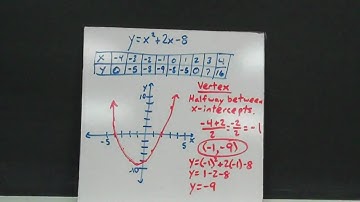 y=x²+2x-8
X -4 -3 -2 -1 0 1 2 3 4
Y 0 -5 -8 -9 -8 -5 0 7 16
Vertex
Halfway between
x-intercepts.
-4+2/2 = -2/2 = -1
(-1,-9)
y=(-1)²+2(-1)-8
y=1-2-8
y=-9
y
10
-5
5
x
-10